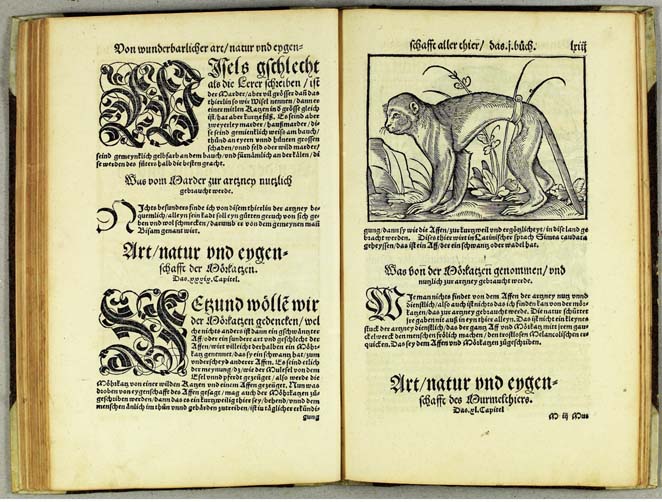 Von wunderbarlicher art/natur vnd eygen-
WIsels gschlecht
als die Lerer schreiben/ ist
der Marder/aber vil grösser dañ das
thierlin so wir Wisel nennen/dann es
einer mitlen Katzen in d grösse gleich
ist/hat aber kurtze füß. Es seind aber
zweyerley marder/haußmarder/di-
se seind gemeinklich weiß am bauch/
thůnd an eyern vnnd hünern grossen
schaden/vnnd feld oder wild marder/
seind gemeynklich gelbfarb an dem bauch/vnd fürnämlich an der kälen/di
se werden des fůters halb die besten geacht.
Was vom Marder zur artzney nutzlich
gebraucht werde.
NIchts besunders finde ich von disem thierlin der artzney be-
quemlich/alleyn sein kadt soll eyn gůtten geruch von sich ge-
ben vnd wol schmecken/darumb er von dem gemeynen mañ
Bisam genant wirt.
Art/natur vnd eygen-
schafft der Mörkatzen.
Das .xxxix. Capitel.
IEtzund wöllē wir
der Mörkatzen gedencken/wel
che nichts anders ist dann ein gschwäntzter
Aff/oder ein sundere art vnd geschlecht der
Affen/wirt villeicht derhalben ein Möhr-
katz genennet/das sy ein schwantz hat/zum
vnderscheyd anderer Affen. Es seind etlich
der meynung/dz/wie der Mulesel von dem
Esel vnd pferdt gezüget/also werde die
Möhrkatz von einer wilden Katzen vnd einem Affen gezüget. Nun was
droben von eygenschafft des Affen gesagt/mag auch der Möhrkatzen zů-
geschriben werden/dann das es ein kurtzweilig thier sey/behend/vnnd dem
menschen änlich im thůn vnnd gebärden zutreiben/ist iñ täglicher erkündi-
gung
schafft aller thier/ das .j. bůch. lxiij
gung/dann sy wie die Affen/zur kurtzweil vnd ergötzlicheyt/in dise land ge
bracht werden. Dises thier wirt in Latinischer sprach Simea caudata
geheyssen/das ist ein Aff/der ein schwantz oder wadel hat.
Was von der Mörkatzen genommen/ vnd
nutzlich zur artzney gebraucht werde.
WIe man nichts findet von dem Affen der artzney nutz vnnd
dienstlich/also auch ist nichts das ich finden kan von der mör-
katzen/das zur artzney gebraucht werde. Die natur schüttet
jre gaben nit auß in eyn thier alleyn. Das ist nicht ein kleynes
stuck der artzney dienstlich/das der gantz Aff vnd Mörkatz mit jrem gau-
ckelwerck den menschen frölich machen/den trostlosen Melancolischen er-
quicken. Das sey dem Affen vnd Mörkatzen zůgeschriben.
Art/natur vnd eygen-
schafft des Murmelthiers.
Das .xl. Capitel
M iij Mus